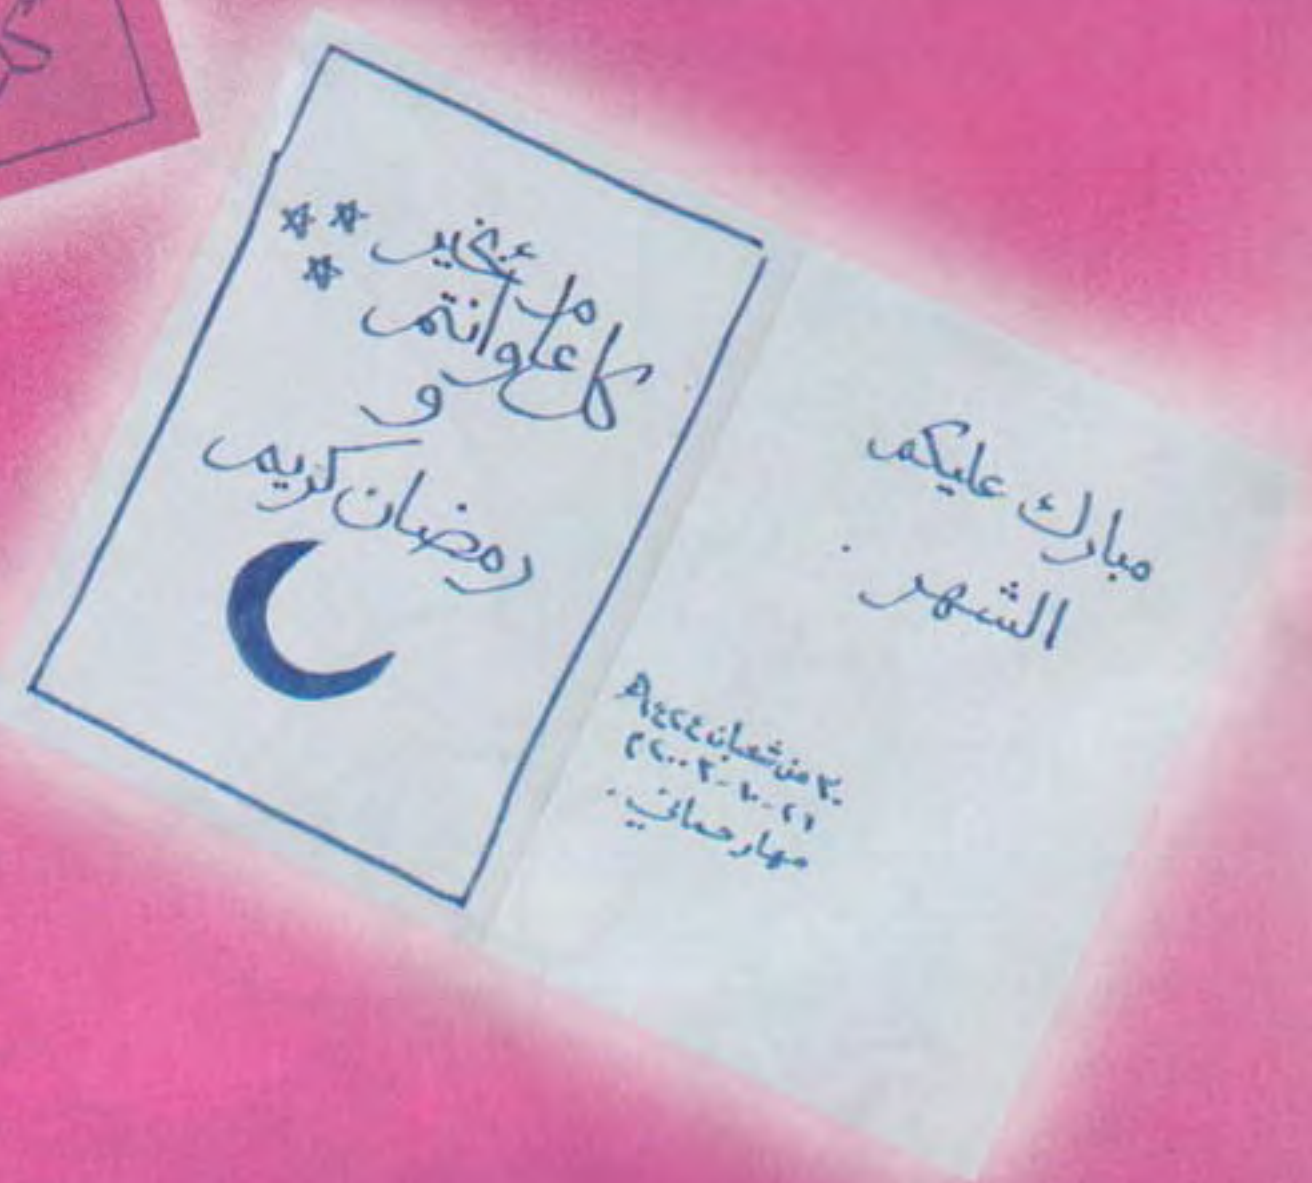 كل عام وأنتم بخير
و
رمضان كريم
مبارك عليكم
الشهر.
٣٠ من شعبان ١٤٢٤هـ
٢٦-١٠-٢٠٠٣م